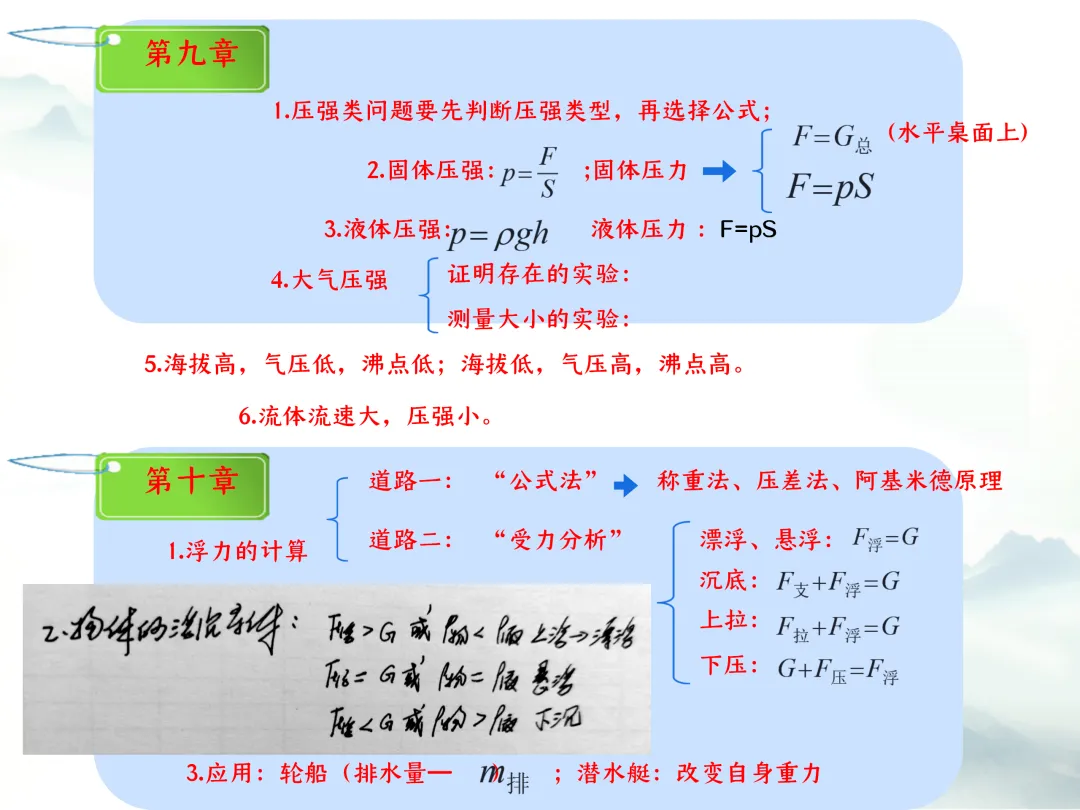 第九章
1.压强类问题要先判断压强类型，再选择公式；
2.固体压强： p=F/S ;固体压力 F=G总 (水平桌面上)
F=pS
3.液体压强: p=ρgh 液体压力 ：F=pS
4.大气压强
证明存在的实验：
测量大小的实验：
5.海拔高，气压低，沸点低；海拔低，气压高，沸点高。
6.流体流速大，压强小。
第十章
1.浮力的计算
道路一： “公式法” 称重法、压差法、阿基米德原理
道路二： “受力分析”
漂浮、悬浮： F浮=G
沉底： F支+F浮=G
上拉： F拉+F浮=G
下压： G+F压=F浮
2.物体的浮沉条件：
F浮>G 或 ρ物<ρ液 上浮→漂浮
F浮=G 或 ρ物=ρ液 悬浮
F浮<G 或 ρ物>ρ液 下沉
3.应用：轮船（排水量— m排 ）；潜水艇：改变自身重力